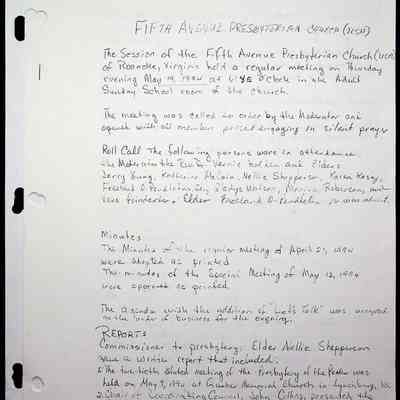 FIFTH AVENUE PRESBYTERIAN CHURCH (USA)
The Session of the Fifth Avenue Presbyterian Church (USA)
of Roanoke, Virginia held a regular meeting on Thursday
evening May 19, 1994 at o'clock in the Adult
Sunday School room of the church.
The meeting was called to order by the Moderator and
opened with all members present engaging in silent prayer
Roll Call The following persons were in attendance
the Moderator the Rev. Vernie Bolden and Elders
Jerry Katherine Nellie Shepperson, Karen Kasey,
Freeland D. Pendleton, Gladys Watson, Robertson, and
Elder Freeland D. Pendleton
Minutes
The Minutes of the regular meeting of April 21, 1994
were adopted as printed
The minutes of the Special Meeting of May 12, 1994
were approved as printed
The agenda with the addition of "Let's Talk" was accepted
as the order of business for the evening.
REPORTS
Commissioner to presbytery: Elder Nellie Shepperson
gave a written report that included:
1. The twentieth stated meeting of the Presbytery of the Peaks was
held on May 9, 1994 at Memorial Church in Lynchburg, Va.
2. Chair of Coordinating Council, John presented the